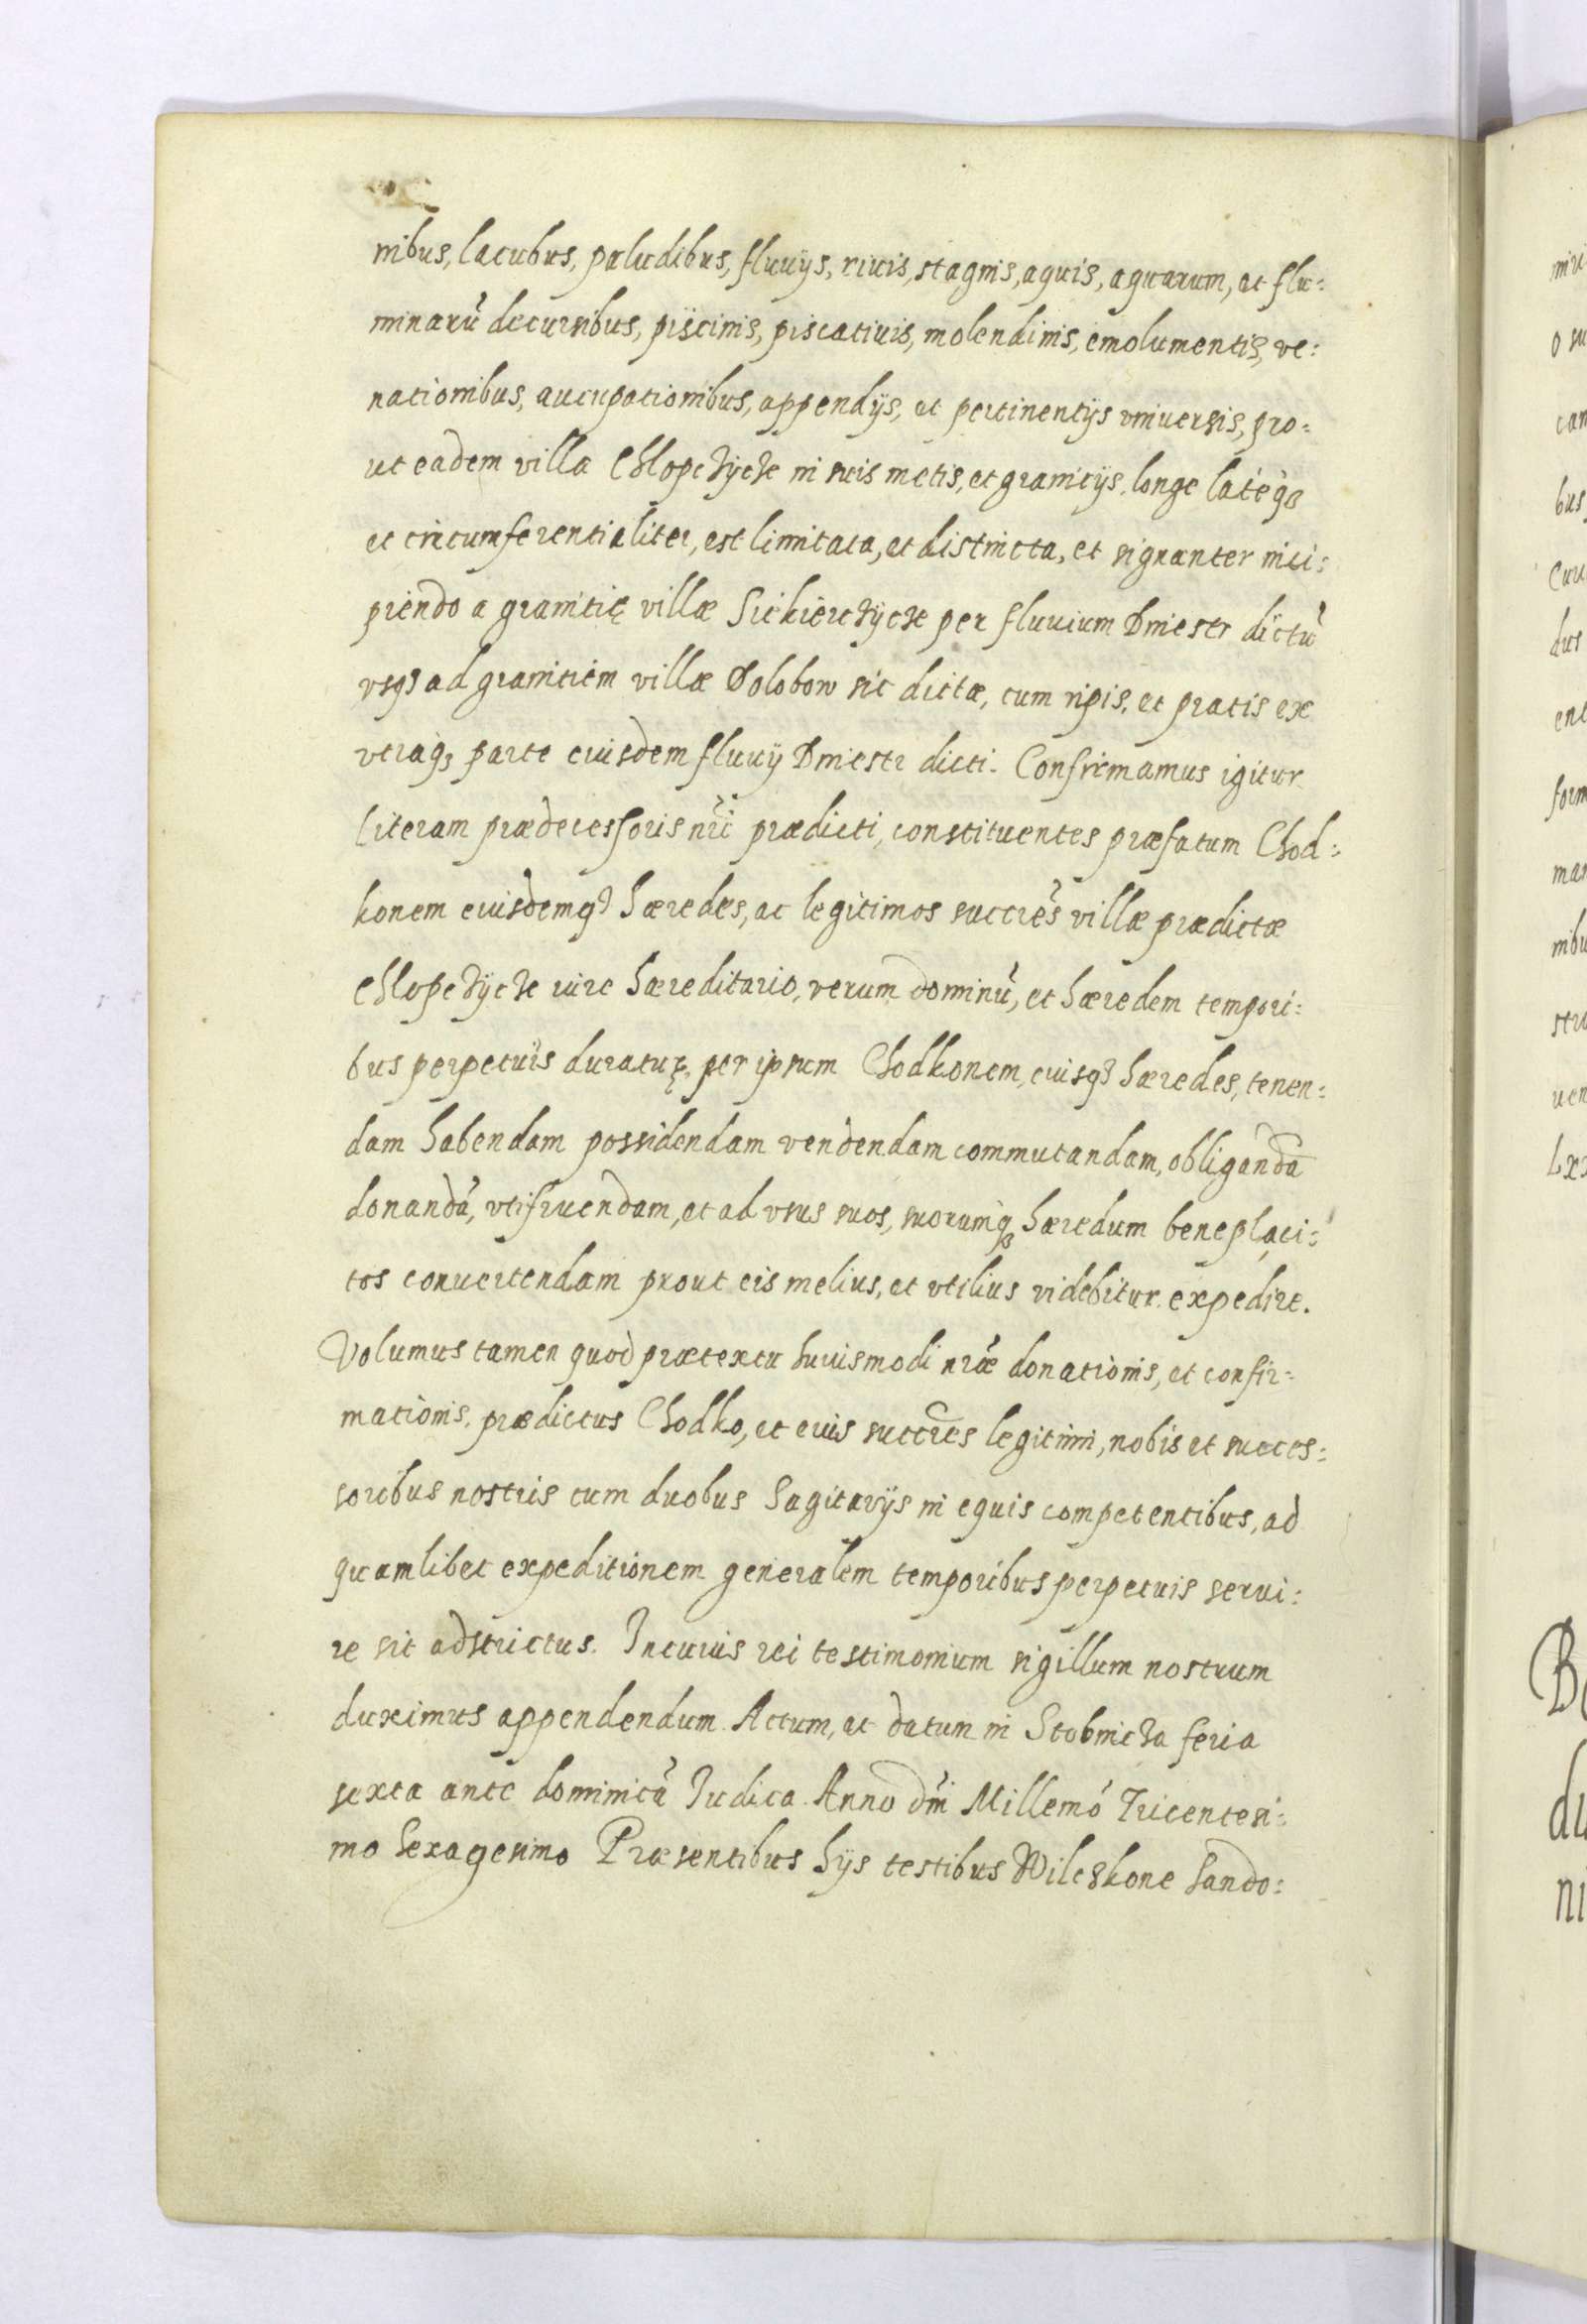 nibus, lacubus, paludibus, fluuÿs, riuis, stagnis, aquis, aquarum, et flu:
minarũ decursibus, piscinis, piscatiuis, molendinis, emolumentis, ve:
nationibus, aucupationibus, appendÿs, et pertinentÿs vniuersis, pro:
ut eadem villa Chlopchÿcze in suis metis, et granicÿs, longe lateq₃
et circumferentialiter, est limitata, et distincta, et signanter inci:
piendo a granitię villæ Siekierczÿcze per fluuium Dniestr dictũ
vsq₃ ad granitiem villæ Dolobow sic dictæ, cum ripis, et pratis ex
vtraq₃ parte eiusdem fluuÿ Dniestr dicti. Confirmamus igitur
literam prædecessoris nr̃i prædicti, constituentes præfatum Chod:
konem eiusdemq₃ hæredes, ac legitimos succrẽs villæ prædictæ
Chlopchÿcze iure hæreditario, verum dominũ, et hæredem tempori:
bus perpetuis duraturę, per ipsum Chodkonem, eiusq₃ hæredes, tenen:
dam habendam possidendam vendendam commutandam, obligandã
donandã, vtifruendam, et ad vsus suos, suorumq₃ hæredum beneplaci:
tos conuertendam prout eis melius, et vtilius videbitur expedire.
Volumus tamen quod prætextu huiusmodi nr̃æ donationis, et confir:
mationis, prædictus Chodko, et eius succr̃es legitimi, nobis et succes:
soribus nostris cum duobus Sagitarÿs in equis competentibus, ad
quamlibet expeditionem generalem temporibus perpetuis serui:
re sit adstrictus. In cuius rei testimonium sigillum nostrum
duximus appendendum. Actum, et datum in Stobnicza feria
sexta ante dominicã Iudica. Anno dm̃i Millemó Tricentesi:
mo Sexagesimo Præsentibus hÿs testibus Wilczkone Sando: